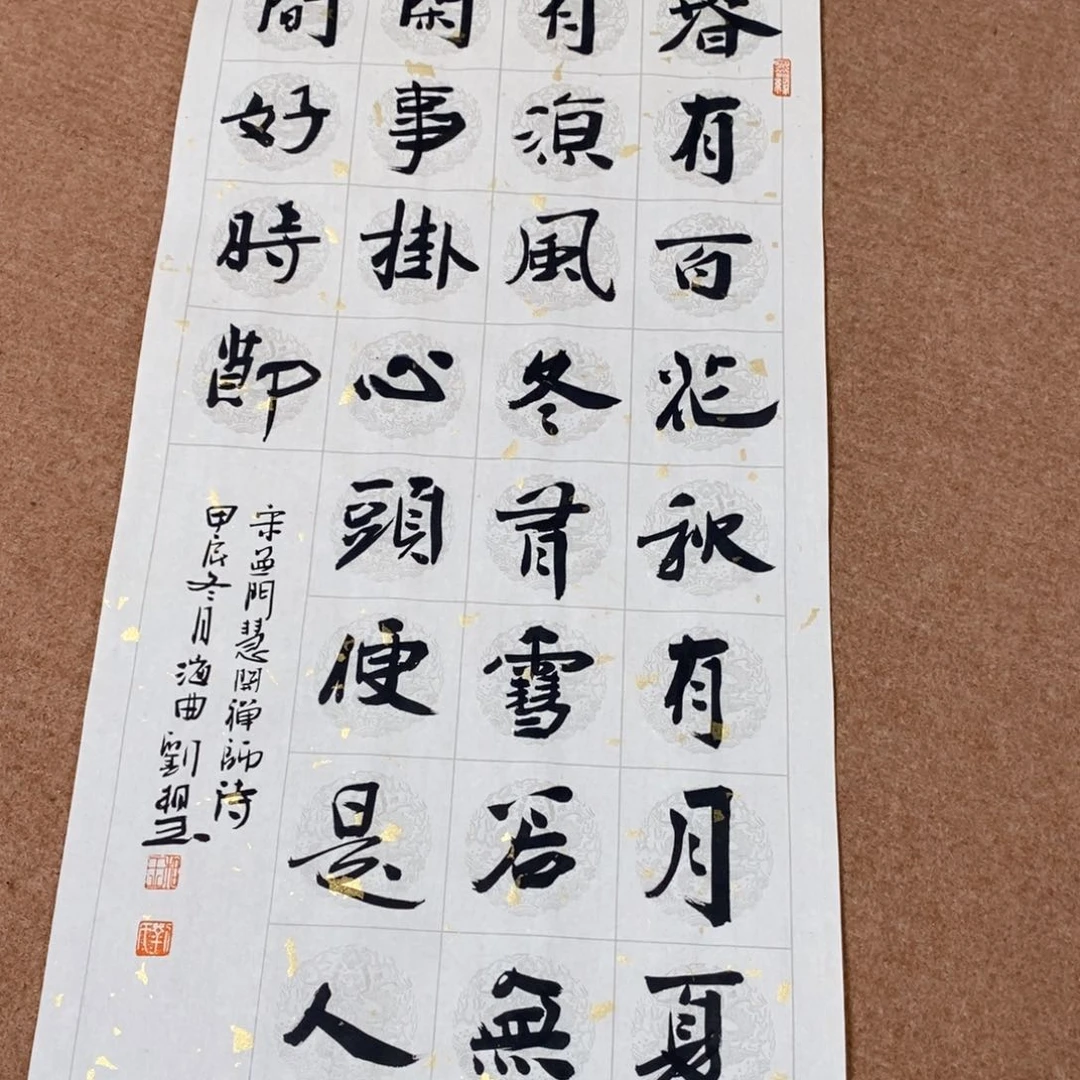 春有百花秋有月夏
有涼風冬有雪若無
閑事掛心頭便是人
間好時節
宋無門慧開禪師詩
甲辰冬月海曲劉